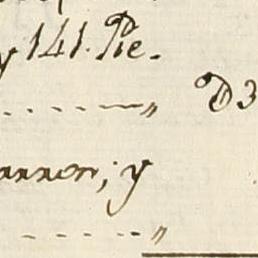 y 141. Pie.
.......... " D3
annon; y
...... "